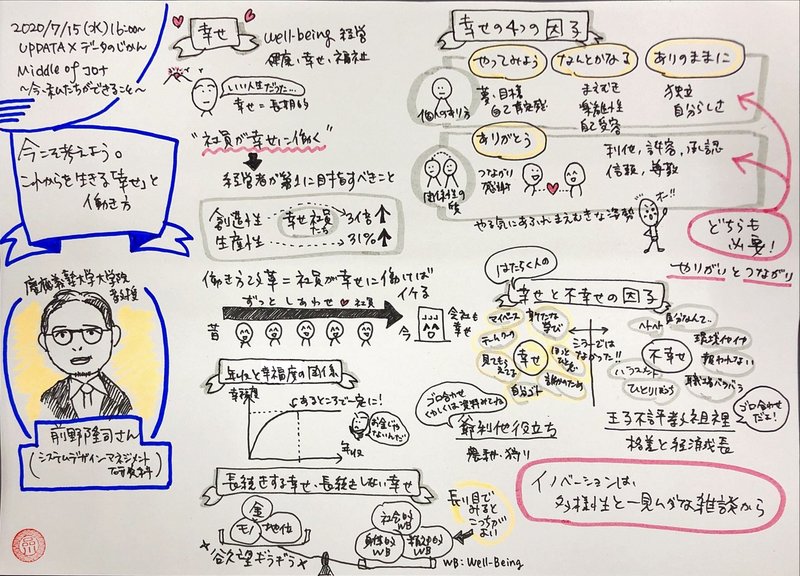 2020/7/15(水)16:00〜
UPDATA×データのじかん
Middle of JOT
〜今、私たちができること〜
今こそ考えよう。
これからを生きる「幸せ」と
働き方
慶應義塾大学大学院
教授
前野隆司さん
(システムデザイン・マネジメント
研究科)
幸せ
Well-being 経営
健康、幸せ、福祉
いい人生だった…
幸せ=長期的
"社員が幸せに働く"
経営者が第1に目指すべきこと
創造性
幸せ社員
3倍
生産性
31%
働き方改革=社員が幸せに働けば
イケる
ずっと しあわせ 社員
昔
今
会社も
幸せ
年収と幸福度の関係
幸福度
あるところで一定に!
年収
お金じゃ
ないんだ!
長続きする幸せ、長続きしない幸せ
金
モノ
地位
欲望ギラギラ
社会的
WB
身体的
WB
精神的
WB
長い目で
みると
こっちが
よい
WB: Well-Being
幸せの4つの因子
やってみよう
なんとかなる
ありのままに
個人のあり方
夢、目標
まえむき
楽観性
自己受容
独立
自分らしさ
ありがとう
団体性の
質
つながり
感謝
利他、許容、承認
信頼、尊敬
やる気にあふれまえむきな姿勢
オー!!
どちらも
必要!
やりがいとつながり
はたらく人の
幸せと不幸せの因子
マイペース
新たな
学び
チームワーク
見てもらえてる
幸せ
ほっと
ひといき
誰かのため
自分ゴト
ミラーでは
なかった!!
自分なんて…
ヘトヘト
環境イヤイヤ
報われない
不幸せ
ハラスメント
ひとりぼっち
職場バラバラ
ゴロ合わせ
くわしくは資料みてね
爺利他役立ち
ゴロ合わせ
だよ!
王子不評教え祖裡
格差と経済成長
イノベーションは、
多様性と一見ムダな雑談から